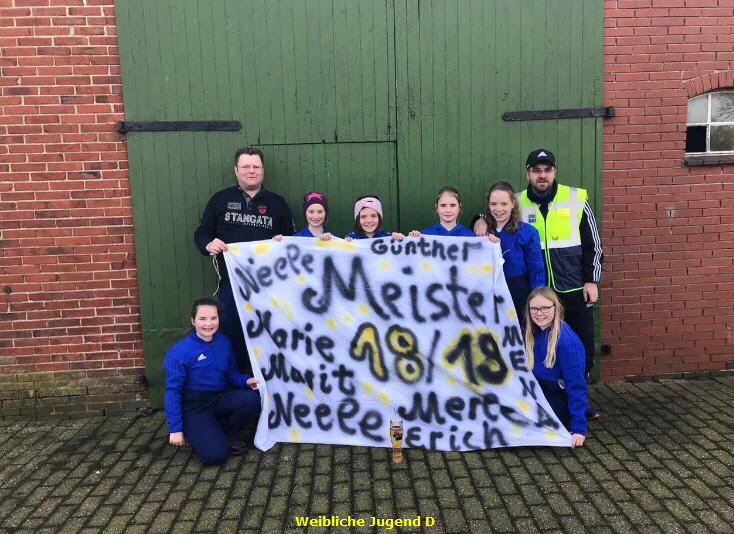 STANGATA
Günther
Neele
Meister
Marie
18/19
Marit
MENNA
Neele
Merle
Erich
Weibliche Jugend D